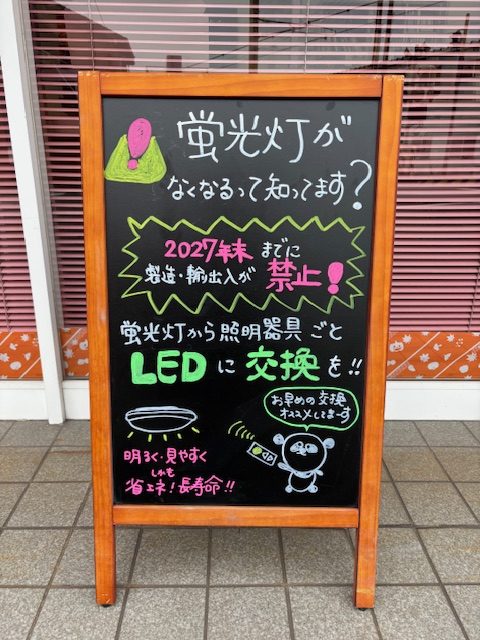 蛍光灯が
なくなるって知ってます?
2027年末までに
製造・輸出入が禁止!
蛍光灯から照明器具ごと
LEDに交換を!!
お早めの交換
オススメしてまーす
明るく・見やすく
しかも
省エネ!長寿命!!